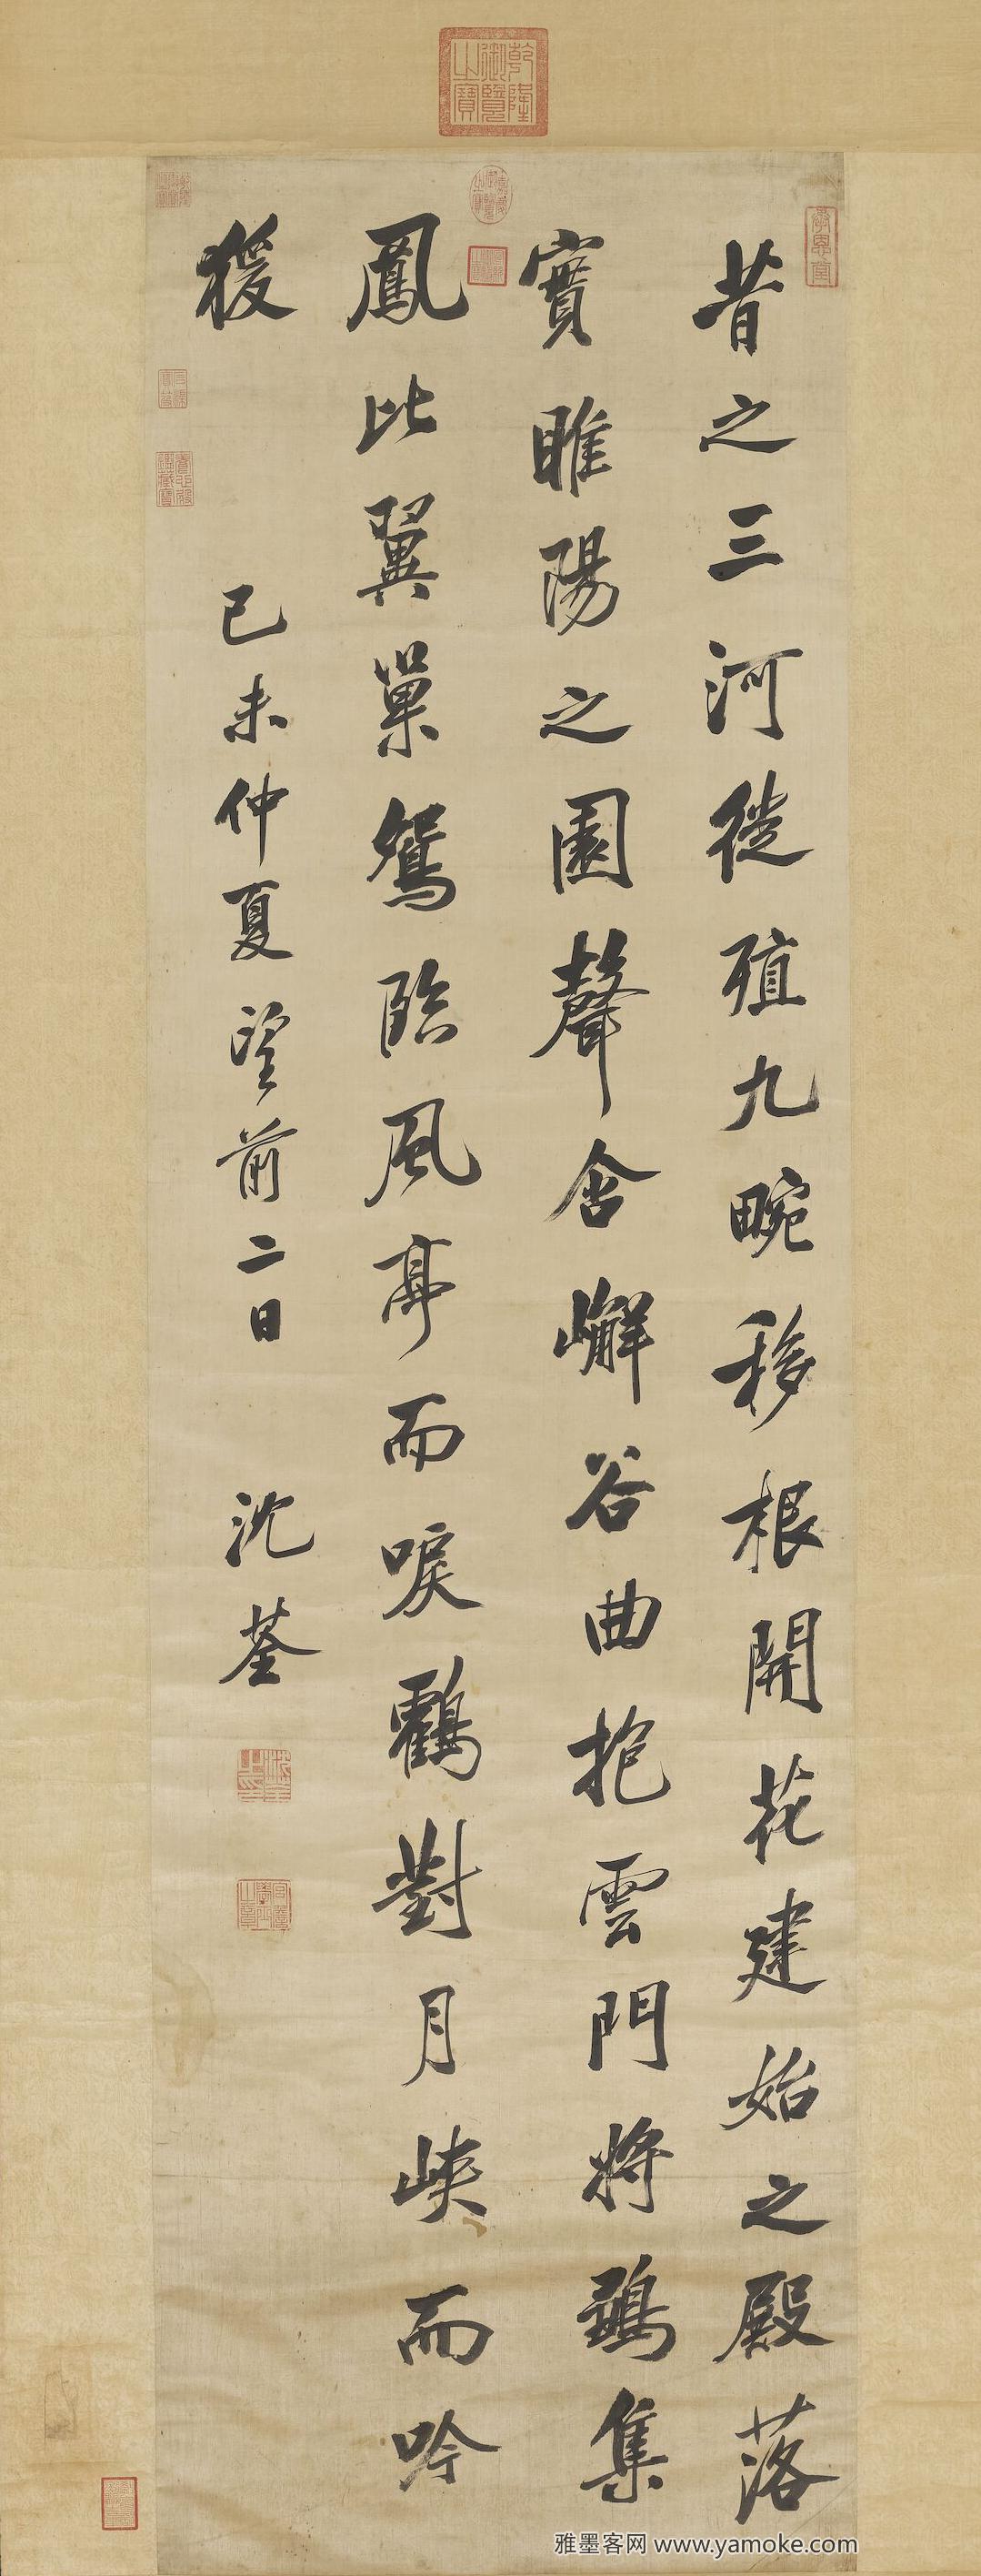 乾隆御覽之寶
昔之三河徙殖九畹移根開花建始之殿落
實睢陽之園聲含嶰谷曲抱雲門將鶵集
鳳比翼巢鴛臨風亭而唳鶴對月峽而吟
猨
己未仲夏望前二日 沈荃
沈荃之印
雅墨客网 www.yamoke.com